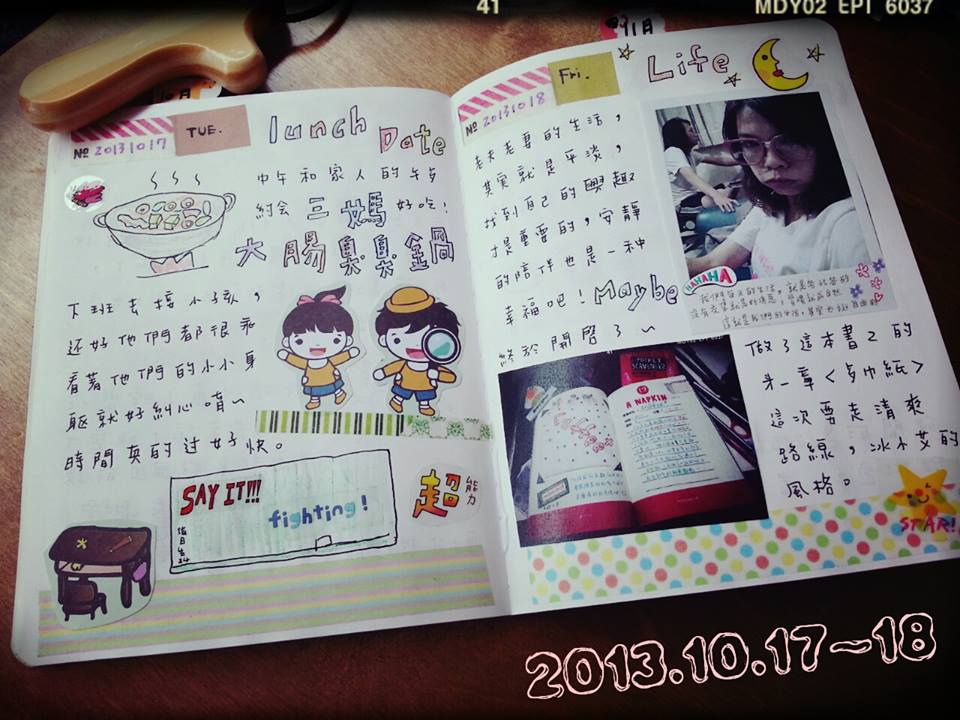 41
MDY02 EPI 6037
11月
月
№ 20131017
TUE.
lunch
Date
中午和家人的午餐
約会三媽好吃!
大腸臭臭鍋
下班去接小孩,
还好他們都很乖
看著他們的小小身
軀就好糾心唷~
時間真的过好快。
SAY IT!!!
fighting!
值日生
超能力
№ 20131018
Fri.
Life
老夫老妻的生活,
其实就是平淡,
找到自己的興趣
才是重要的,安靜
的陪伴也是一种
幸福吧!Maybe
HAHAHA
終於開啓了~
A NAPKIN
做了這本書2的
第一章<餐巾紙>
這次要走清爽
路線,冰木艾的
風格。
STAR!
2013.10.17~18